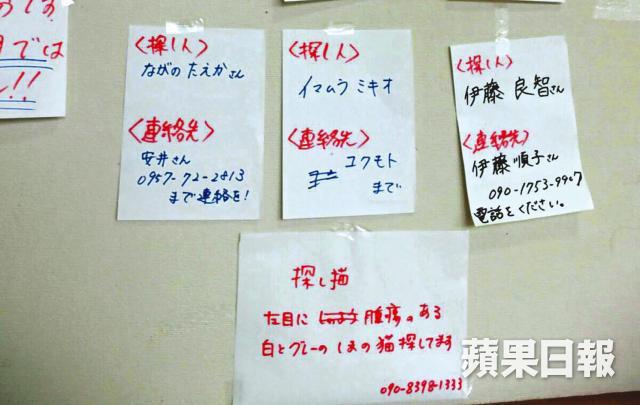 では
!!
〈探し人〉
ながの たえかさん
〈連絡先〉
安井さん
0957-72-2413
まで連絡を!
〈探し人〉
イマムラ ミキオ
〈連絡先〉
ユクモト
まで
〈探し人〉
伊藤 良智さん
〈連絡先〉
伊藤順子さん
090-1753-9907
電話をください。
探し猫
左目に 腫瘍のある
白とグレーの しまの 猫 探してます
090-8398-1333
蘋果日報